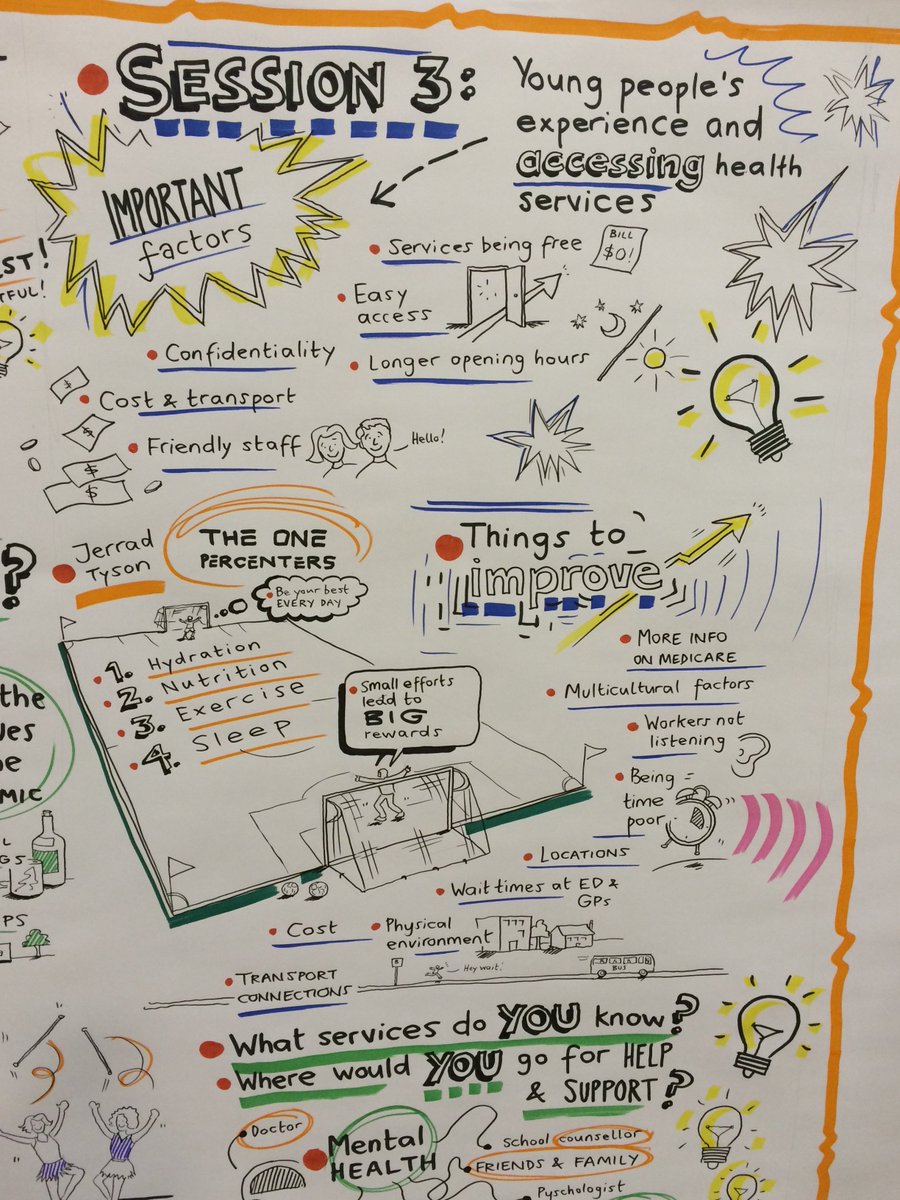 SESSION 3:
Young people's
experience and
accessing health
services
IMPORTANT
factors
Services being free
BILL
$0!
Easy
access
Confidentiality
Longer opening hours
Cost & transport
Friendly staff
Hello!
$
$
$
$
Jerrad
Tyson
THE ONE
PERCENTERS
Be your best
EVERY DAY
1. Hydration
2. Nutrition
3. Exercise
4. Sleep
Small efforts
lead to
BIG
rewards
Things to
improve
MORE INFO
ON MEDICARE
Multicultural factors
Workers not
listening
Being
time
poor
LOCATIONS
Wait times at ED &
GPs
Cost
Physical
environment
TRANSPORT
CONNECTIONS
B
Hey wait!
BUS
What services do YOU know?
Where would YOU go for HELP
& SUPPORT?
Doctor
Mental
HEALTH
School counsellor
FRIENDS & FAMILY
Pyschologist
!
?
the